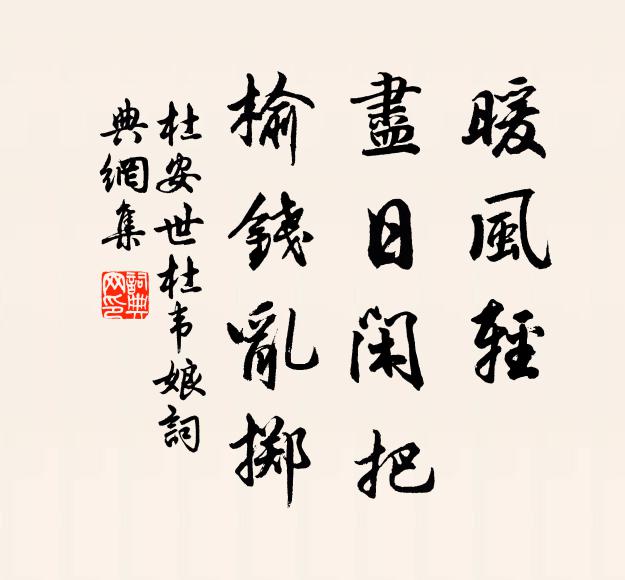 暖風輕
盡日閑把
榆錢亂掷
杜安世杜韦娘詞
典網集
詞典
网印